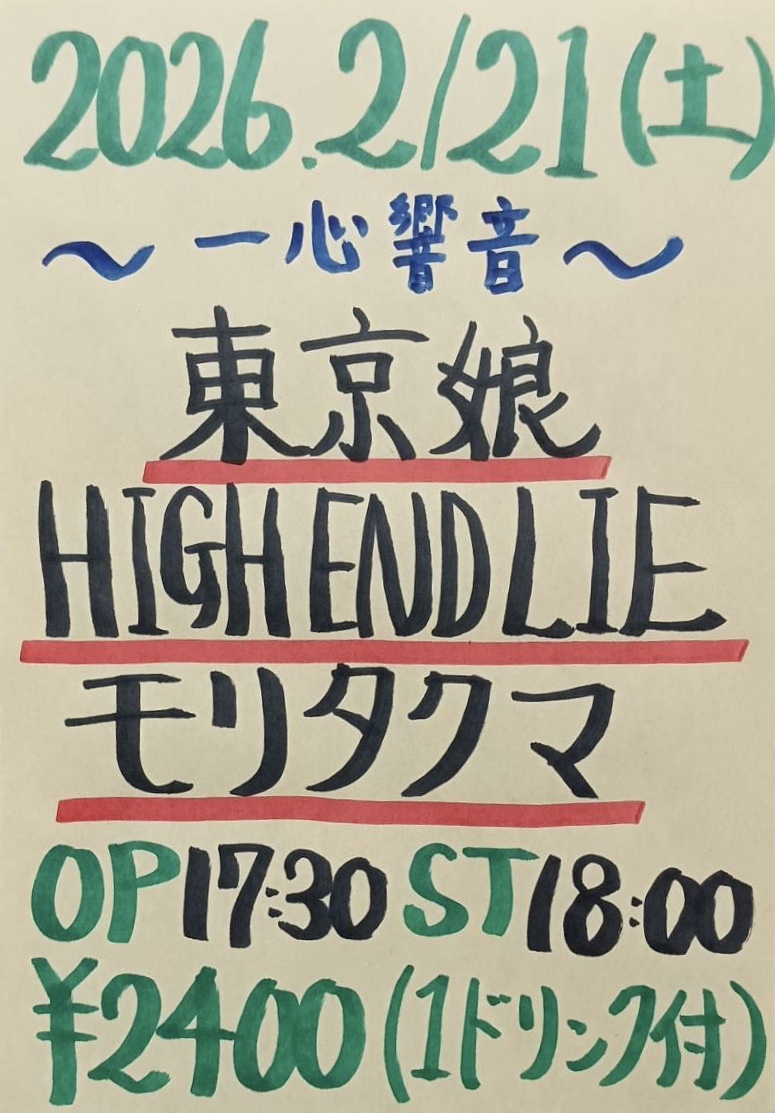 2026.2/21(土)
～一心響音～
東京娘
HIGH END LIE
モリタクマ
OP17:30 ST18:00
¥2400(1ドリンク付)